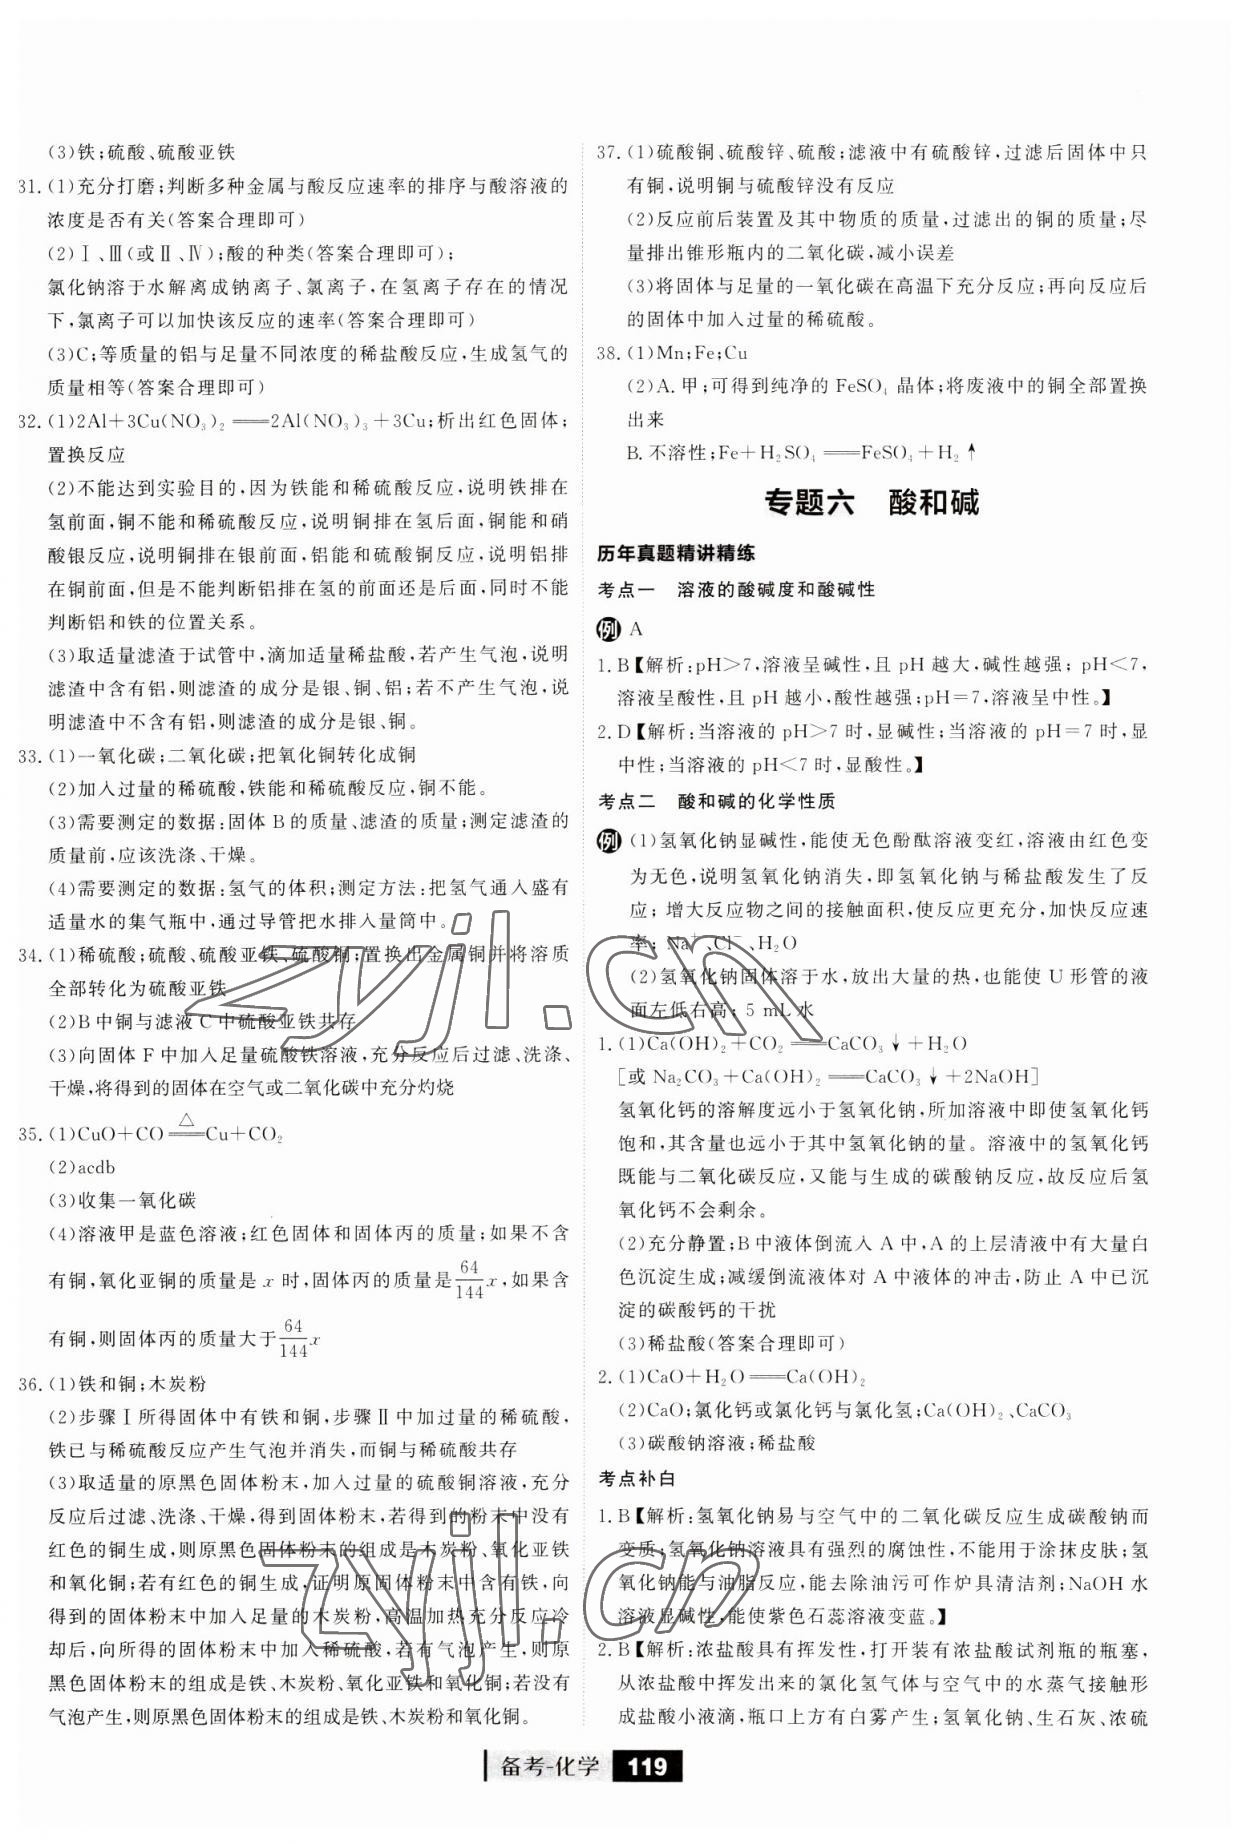 (3)铁;硫酸、硫酸亚铁
31. (1)充分打磨;判断多种金属与酸反应速率的排序与酸溶液的
浓度是否有关(答案合理即可)
(2)Ⅰ、Ⅲ(或Ⅱ、Ⅳ);酸的种类(答案合理即可);
氯化钠溶于水解离成钠离子、氯离子,在氢离子存在的情况
下,氯离子可以加快该反应的速率(答案合理即可)
(3)C;等质量的铝与足量不同浓度的稀盐酸反应,生成氢气的
质量相等(答案合理即可)
32. (1)2Al+3Cu(NO₃)₂══2Al(NO₃)₃+3Cu;析出红色固体;
置换反应
(2)不能达到实验目的,因为铁能和稀硫酸反应,说明铁排在
氢前面,铜不能和稀硫酸反应,说明铜排在氢后面,铜能和硝
酸银反应,说明铜排在银前面,铝能和硫酸铜反应,说明铝排
在铜前面,但是不能判断铝排在氢的前面还是后面,同时不能
判断铝和铁的位置关系。
(3)取适量滤渣于试管中,滴加适量稀盐酸,若产生气泡,说明
滤渣中含有铝,则滤渣的成分是银、铜、铝;若不产生气泡,说
明滤渣中不含有铝,则滤渣的成分是银、铜。
33. (1)一氧化碳;二氧化碳;把氧化铜转化成铜
(2)加入过量的稀硫酸,铁能和稀硫酸反应,铜不能。
(3)需要测定的数据:固体 B 的质量、滤渣的质量;测定滤渣的
质量前,应该洗涤、干燥。
(4)需要测定的数据:氢气的体积;测定方法:把氢气通入盛有
适量水的集气瓶中,通过导管把水排入量筒中。
34. (1)稀硫酸;硫酸、硫酸亚铁、硫酸铜;置换出金属铜并将溶质
全部转化为硫酸亚铁
(2)B 中铜与滤液 C 中硫酸亚铁共存
(3)向固体 F 中加入足量硫酸铁溶液,充分反应后过滤、洗涤、
干燥,将得到的固体在空气或二氧化碳中充分灼烧
35. (1)CuO+CO═△═Cu+CO₂
(2)acdb
(3)收集一氧化碳
(4)溶液甲是蓝色溶液;红色固体和固体丙的质量;如果不含
有铜,氧化亚铜的质量是 x 时,固体丙的质量是64/144 x,如果含
有铜,则固体丙的质量大于64/144 x
36. (1)铁和铜;木炭粉
(2)步骤Ⅰ所得固体中有铁和铜,步骤Ⅱ中加过量的稀硫酸,
铁已与稀硫酸反应产生气泡并消失,而铜与稀硫酸共存
(3)取适量的原黑色固体粉末,加入过量的硫酸铜溶液,充分
反应后过滤、洗涤、干燥,得到固体粉末,若得到的粉末中没有
红色的铜生成,则原黑色固体粉末的组成是木炭粉、氧化亚铁
和氧化铜;若有红色的铜生成,证明原固体粉末中含有铁,向
得到的固体粉末中加入足量的木炭粉,高温加热充分反应冷
却后,向所得的固体粉末中加入稀硫酸,若有气泡产生,则原
黑色固体粉末的组成是铁、木炭粉、氧化亚铁和氧化铜;若没有
气泡产生,则原黑色固体粉末的组成是铁、木炭粉和氧化铜。
37. (1)硫酸铜、硫酸锌、硫酸;滤液中有硫酸锌,过滤后固体中只
有铜,说明铜与硫酸锌没有反应
(2)反应前后装置及其中物质的质量,过滤出的铜的质量;尽
量排出锥形瓶内的二氧化碳,减小误差
(3)将固体与足量的一氧化碳在高温下充分反应;再向反应后
的固体中加入过量的稀硫酸。
38. (1)Mn;Fe;Cu
(2)A. 甲;可得到纯净的 FeSO₄ 晶体;将废液中的铜全部置换
出来
B. 不溶性;Fe+H₂SO₄══FeSO₄+H₂↑
专题六 酸和碱
历年真题精讲精练
考点一 溶液的酸碱度和酸碱性
例 A
1. B【解析:pH>7,溶液呈碱性,且 pH 越大,碱性越强;pH<7,
溶液呈酸性,且 pH 越小,酸性越强;pH=7,溶液呈中性。】
2. D【解析:当溶液的 pH>7 时,显碱性;当溶液的 pH=7 时,显
中性;当溶液的 pH<7 时,显酸性。】
考点二 酸和碱的化学性质
例 (1)氢氧化钠显碱性,能使无色酚酞溶液变红,溶液由红色变
为无色,说明氢氧化钠消失,即氢氧化钠与稀盐酸发生了反
应;增大反应物之间的接触面积,使反应更充分,加快反应速
率;Na⁺、Cl⁻、H₂O
(2)氢氧化钠固体溶于水,放出大量的热,也能使 U 形管的液
面左低右高;5 mL 水
1. (1)Ca(OH)₂+CO₂══CaCO₃↓+H₂O
[或 Na₂CO₃+Ca(OH)₂══CaCO₃↓+2NaOH]
氢氧化钙的溶解度远小于氢氧化钠,所加溶液中即使氢氧化钙
饱和,其含量也远小于其中氢氧化钠的量。溶液中的氢氧化钙
既能与二氧化碳反应,又能与生成的碳酸钠反应,故反应后氢
氧化钙不会剩余。
(2)充分静置;B 中液体倒流入 A 中,A 的上层清液中有大量白
色沉淀生成;减缓倒流液体对 A 中液体的冲击,防止 A 中已沉
淀的碳酸钙的干扰
(3)稀盐酸(答案合理即可)
2. (1)CaO+H₂O══Ca(OH)₂
(2)CaO;氯化钙或氯化钙与氯化氢;Ca(OH)₂、CaCO₃
(3)碳酸钠溶液;稀盐酸
考点补白
1. B【解析:氢氧化钠易与空气中的二氧化碳反应生成碳酸钠而
变质;氢氧化钠溶液具有强烈的腐蚀性,不能用于涂抹皮肤;氢
氧化钠能与油脂反应,能去除油污可作炉具清洁剂;NaOH 水
溶液显碱性,能使紫色石蕊溶液变蓝。】
2. B【解析:浓盐酸具有挥发性,打开装有浓盐酸试剂瓶的瓶塞,
从浓盐酸中挥发出来的氯化氢气体与空气中的水蒸气接触形
成盐酸小液滴,瓶口上方有白雾产生;氢氧化钠、生石灰、浓硫
备考-化学 119
zyjl.cn
zyjl.cn